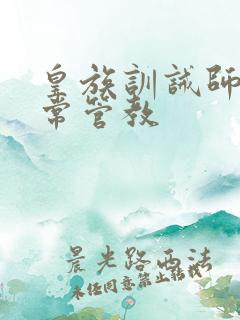 皇族訓誡師日
常管教
晨光路西法
未经同意禁止转载